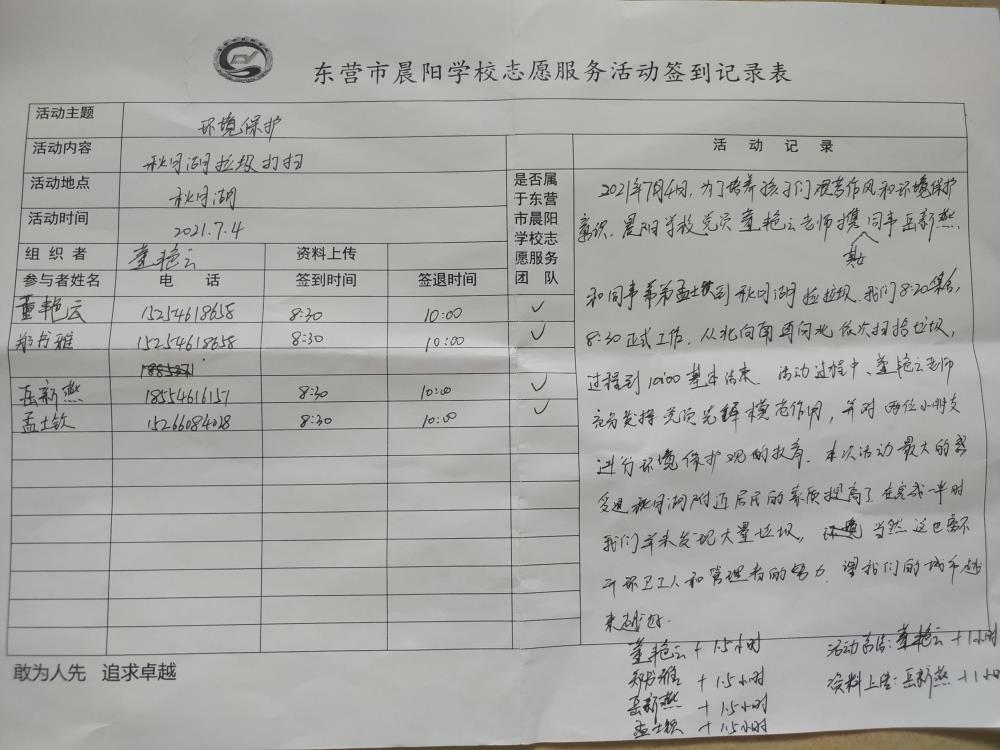 东营市晨阳学校志愿服务活动签到记录表
活动主题 环境保护
活动内容 秋月湖垃圾打扫
活动地点 秋月湖
活动时间 2021.7.4
组织者 董艳云 资料上传
参与者姓名 电话 签到时间 签退时间
是否属
于东营
市晨阳
学校志
愿服务
团队
董艳云 15254618658 8:30 10:00 ✓
郑书雅 15254618658 8:30 10:00 ✓
岳新燕 18554616157 8:30 10:00 ✓
孟士钦 15266084028 8:30 10:00 ✓
活动记录
2021年7月4日,为了培养孩子们艰苦作风和环境保护
意识,晨阳学校党员董艳云老师携同事岳新燕
其女
和同事弟弟孟士钦到秋月湖捡垃圾.我们8:20集合,
8:30正式工作,从北向南再向北依次扫拾垃圾,
过程到10:00基本结束.活动过程中,董艳云老师
充分发挥党员先锋模范作用,并对两位小朋友
进行环境保护观的教育.本次活动最大的感
受是秋月湖附近居民的素质提高了在完成一半时
我们并未发现大量垃圾,当然这也离不
开环卫工人和管理者的努力.望我们的城市越
来越好.
董艳云+1.5小时
郑书雅+1.5小时
岳新燕+1.5小时
孟士钦+1.5小时
活动高洁:董艳云+1小时
资料上传:岳新燕+1小时
敢为人先 追求卓越